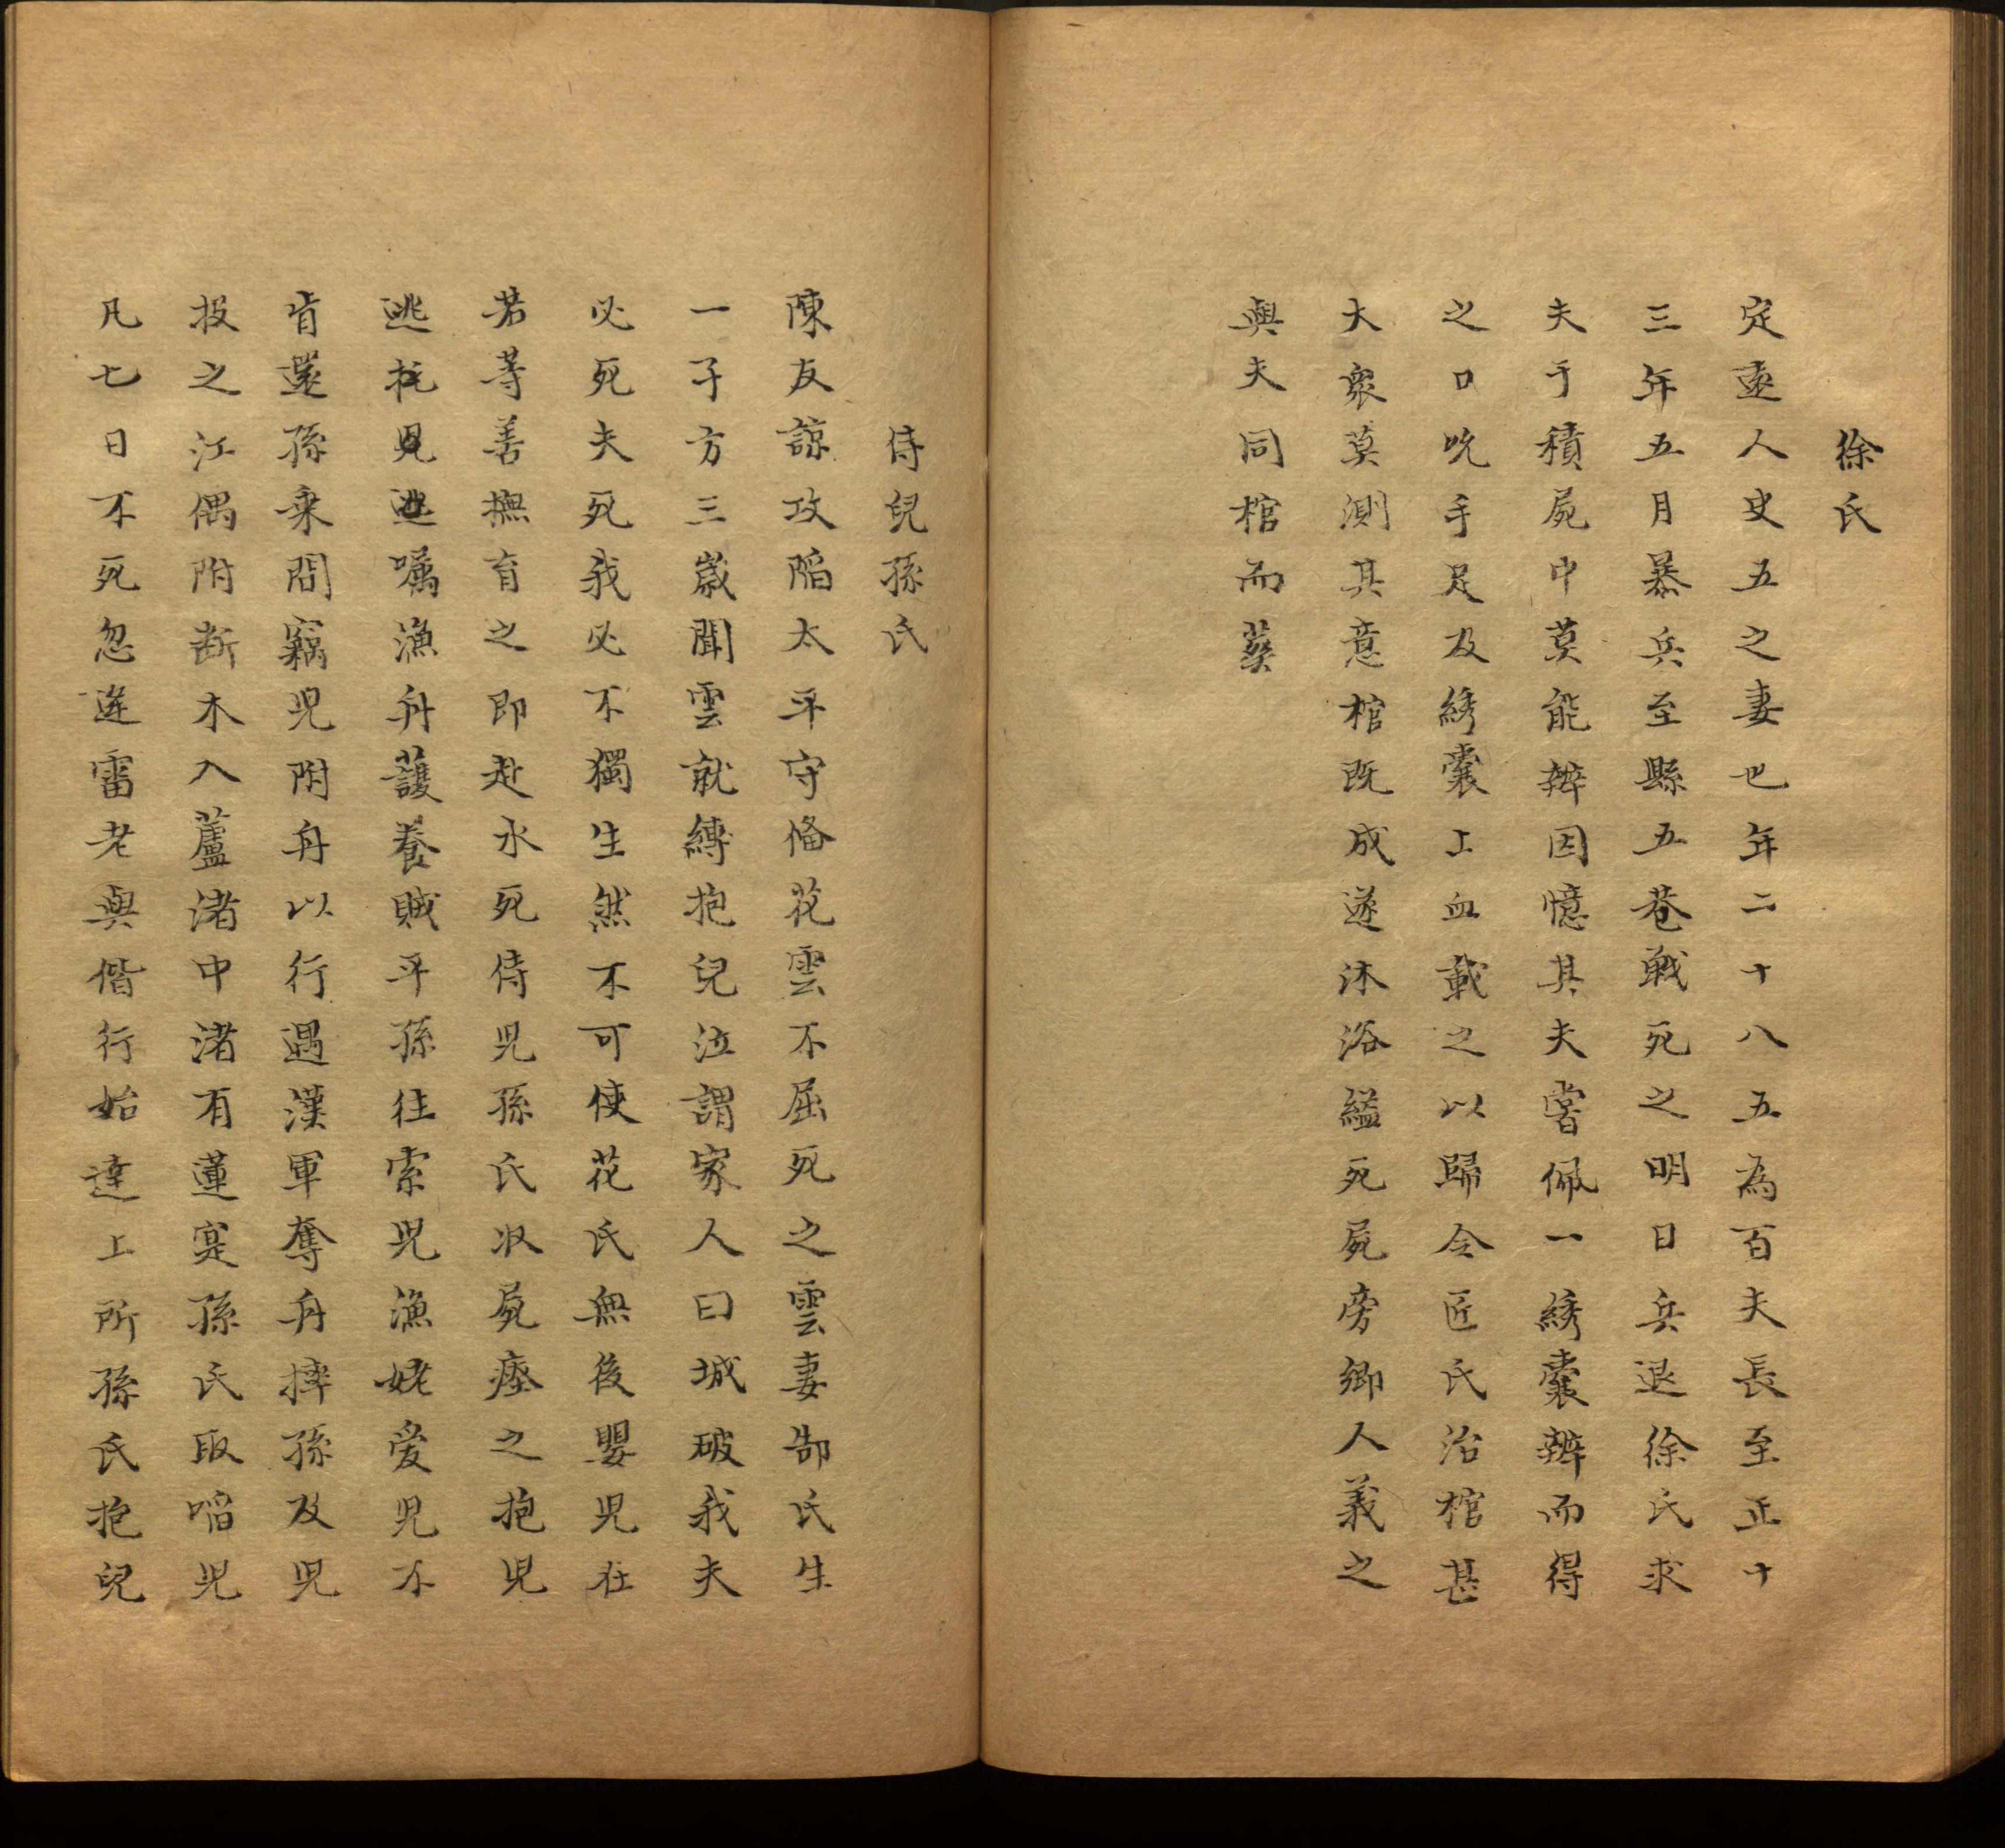 徐氏
定遠人史五之妻也年二十八五為百夫長至正十
三年五月暴兵至縣五巷戰死之明日兵退徐氏求
夫于積屍中莫能辨因憶其夫嘗佩一綉囊辨而得
之口吮手足及綉囊上血載之以歸令匠氏治棺甚
大衆莫測其意棺既成遂沐浴縊死屍旁鄉人義之
與夫同棺而葬
侍兒孫氏
陳友諒攻陷太平守俻花雲不屈死之雲妻郜氏生
一子方三歲聞雲就縛抱兒泣謂家人曰城破我夫
必死夫死我必不獨生然不可使花氏無後嬰児在
若等善撫育之即赴水死侍児孫氏收屍瘞之抱児
逃托見逃嘱漁舟護養賊平孫往索児漁姥爱児不
肯還孫乘間竊児附舟以行遇漢軍奪舟摔孫及児
投之江偶附断木入蘆渚中渚有蓮寔孫氏取啗児
凡七日不死忽逢雷老與偕行始達上所孫氏抱兒